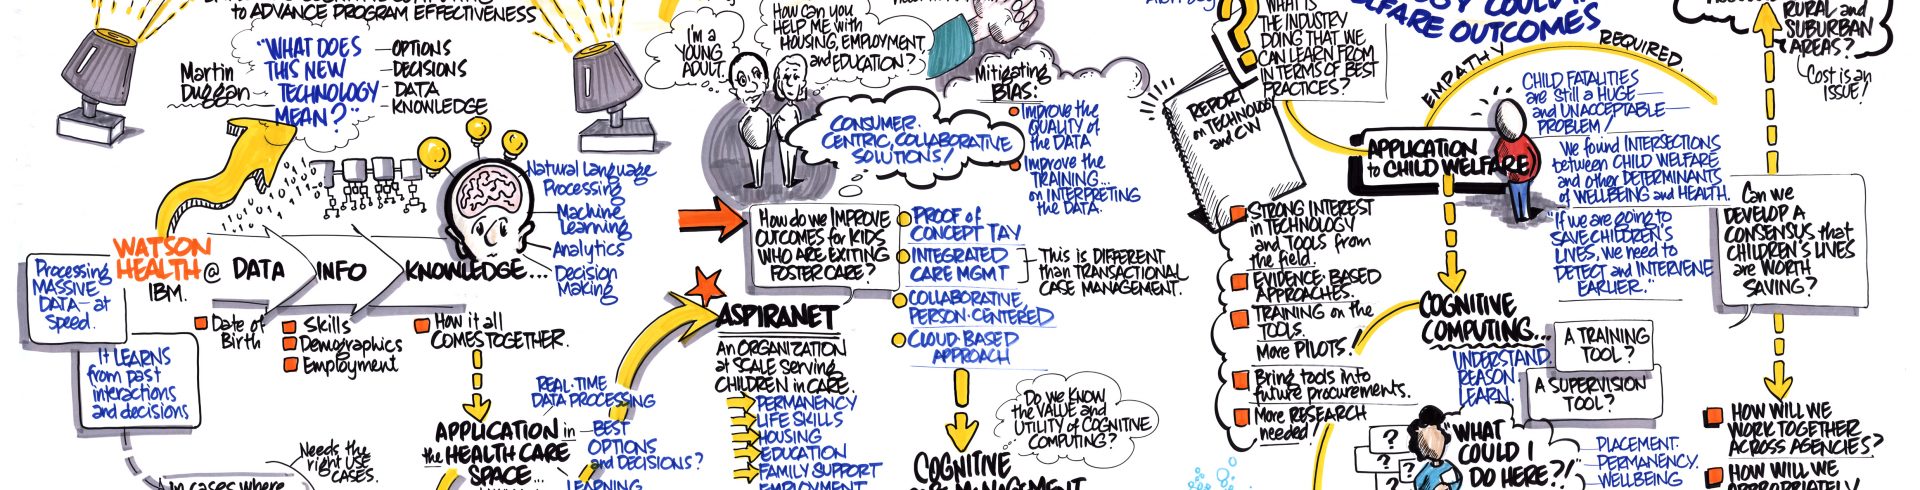 to ADVANCE PROGRAM EFFECTIVENESS
Martin
Duggan
"WHAT DOES
THIS NEW
TECHNOLOGY
MEAN?"
OPTIONS
DECISIONS
DATA
KNOWLEDGE
WATSON
HEALTH @
IBM.
Processing
MASSIVE
DATA - at
speed.
It LEARNS
from past
interactions
and decisions
DATA
INFO
KNOWLEDGE...
Natural Language
Processing
Machine
Learning
Analytics
Decision
Making
Date of
Birth
Skills
Demographics
Employment
How it all
COMES TOGETHER.
APPLICATION in
the HEALTH CARE
SPACE...
Needs the
right USE
CASES.
In cases where
REAL-TIME
DATA PROCESSING
BEST
OPTIONS
and DECISIONS?
LEARNING
I'm a
YOUNG
ADULT.
How can you
HELP ME with
HOUSING, EMPLOYMENT,
and EDUCATION?
CONSUMER-
CENTRIC, COLLABORATIVE
SOLUTIONS!
Mitigating
BIAS:
Improve the
QUALITY of
the DATA
Improve the
TRAINING...
on INTERPRETING
the DATA.
How do we IMPROVE
OUTCOMES for KIDS
WHO ARE EXITING
FOSTER CARE?
PROOF of
CONCEPT TAY
INTEGRATED
CARE MGMT
COLLABORATIVE,
PERSON-CENTERED
CLOUD-BASED
APPROACH
This is DIFFERENT
than TRANSACTIONAL
CASE MANAGEMENT.
ASPIRANET
An ORGANIZATION
at SCALE serving
CHILDREN in CARE.
PERMANENCY
LIFE SKILLS
HOUSING
EDUCATION
FAMILY SUPPORT
EMPLOYMENT
Do we KNOW
the VALUE and
UTILITY of COGNITIVE
COMPUTING?
COGNITIVE
WHAT IS
THE INDUSTRY
DOING THAT WE
CAN LEARN FROM
IN TERMS OF BEST
PRACTICES?
REPORT
on TECHNOLOGY
and CW
STRONG INTEREST
in TECHNOLOGY
and TOOLS from
the field.
EVIDENCE-BASED
APPROACHES.
TRAINING on the
TOOLS.
More PILOTS.
Bring tools into
future procurements.
More RESEARCH
needed!
WELFARE OUTCOMES
EMPATHY
REQUIRED.
APPLICATION
to CHILD WELFARE
CHILD FATALITIES
are still a HUGE
and UNACCEPTABLE
PROBLEM!
We found INTERSECTIONS
between CHILD WELFARE
and other DETERMINANTS
of WELLBEING and HEALTH.
"If we are going to
SAVE CHILDREN'S
LIVES, we need to
DETECT and INTERVENE
EARLIER."
COGNITIVE
COMPUTING...
UNDERSTAND.
REASON
LEARN.
A TRAINING
TOOL?
A SUPERVISION
TOOL?
?
?
?
?
"WHAT
COULD I
DO HERE?!"
PLACEMENT.
PERMANENCY.
WELLBEING
RURAL and
SUBURBAN
AREAS?
Cost is an
ISSUE!
Can we
DEVELOP A
CONSENSUS that
CHILDREN'S LIVES
are WORTH
SAVING?
HOW WILL WE
WORK TOGETHER
ACROSS AGENCIES?
HOW WILL WE